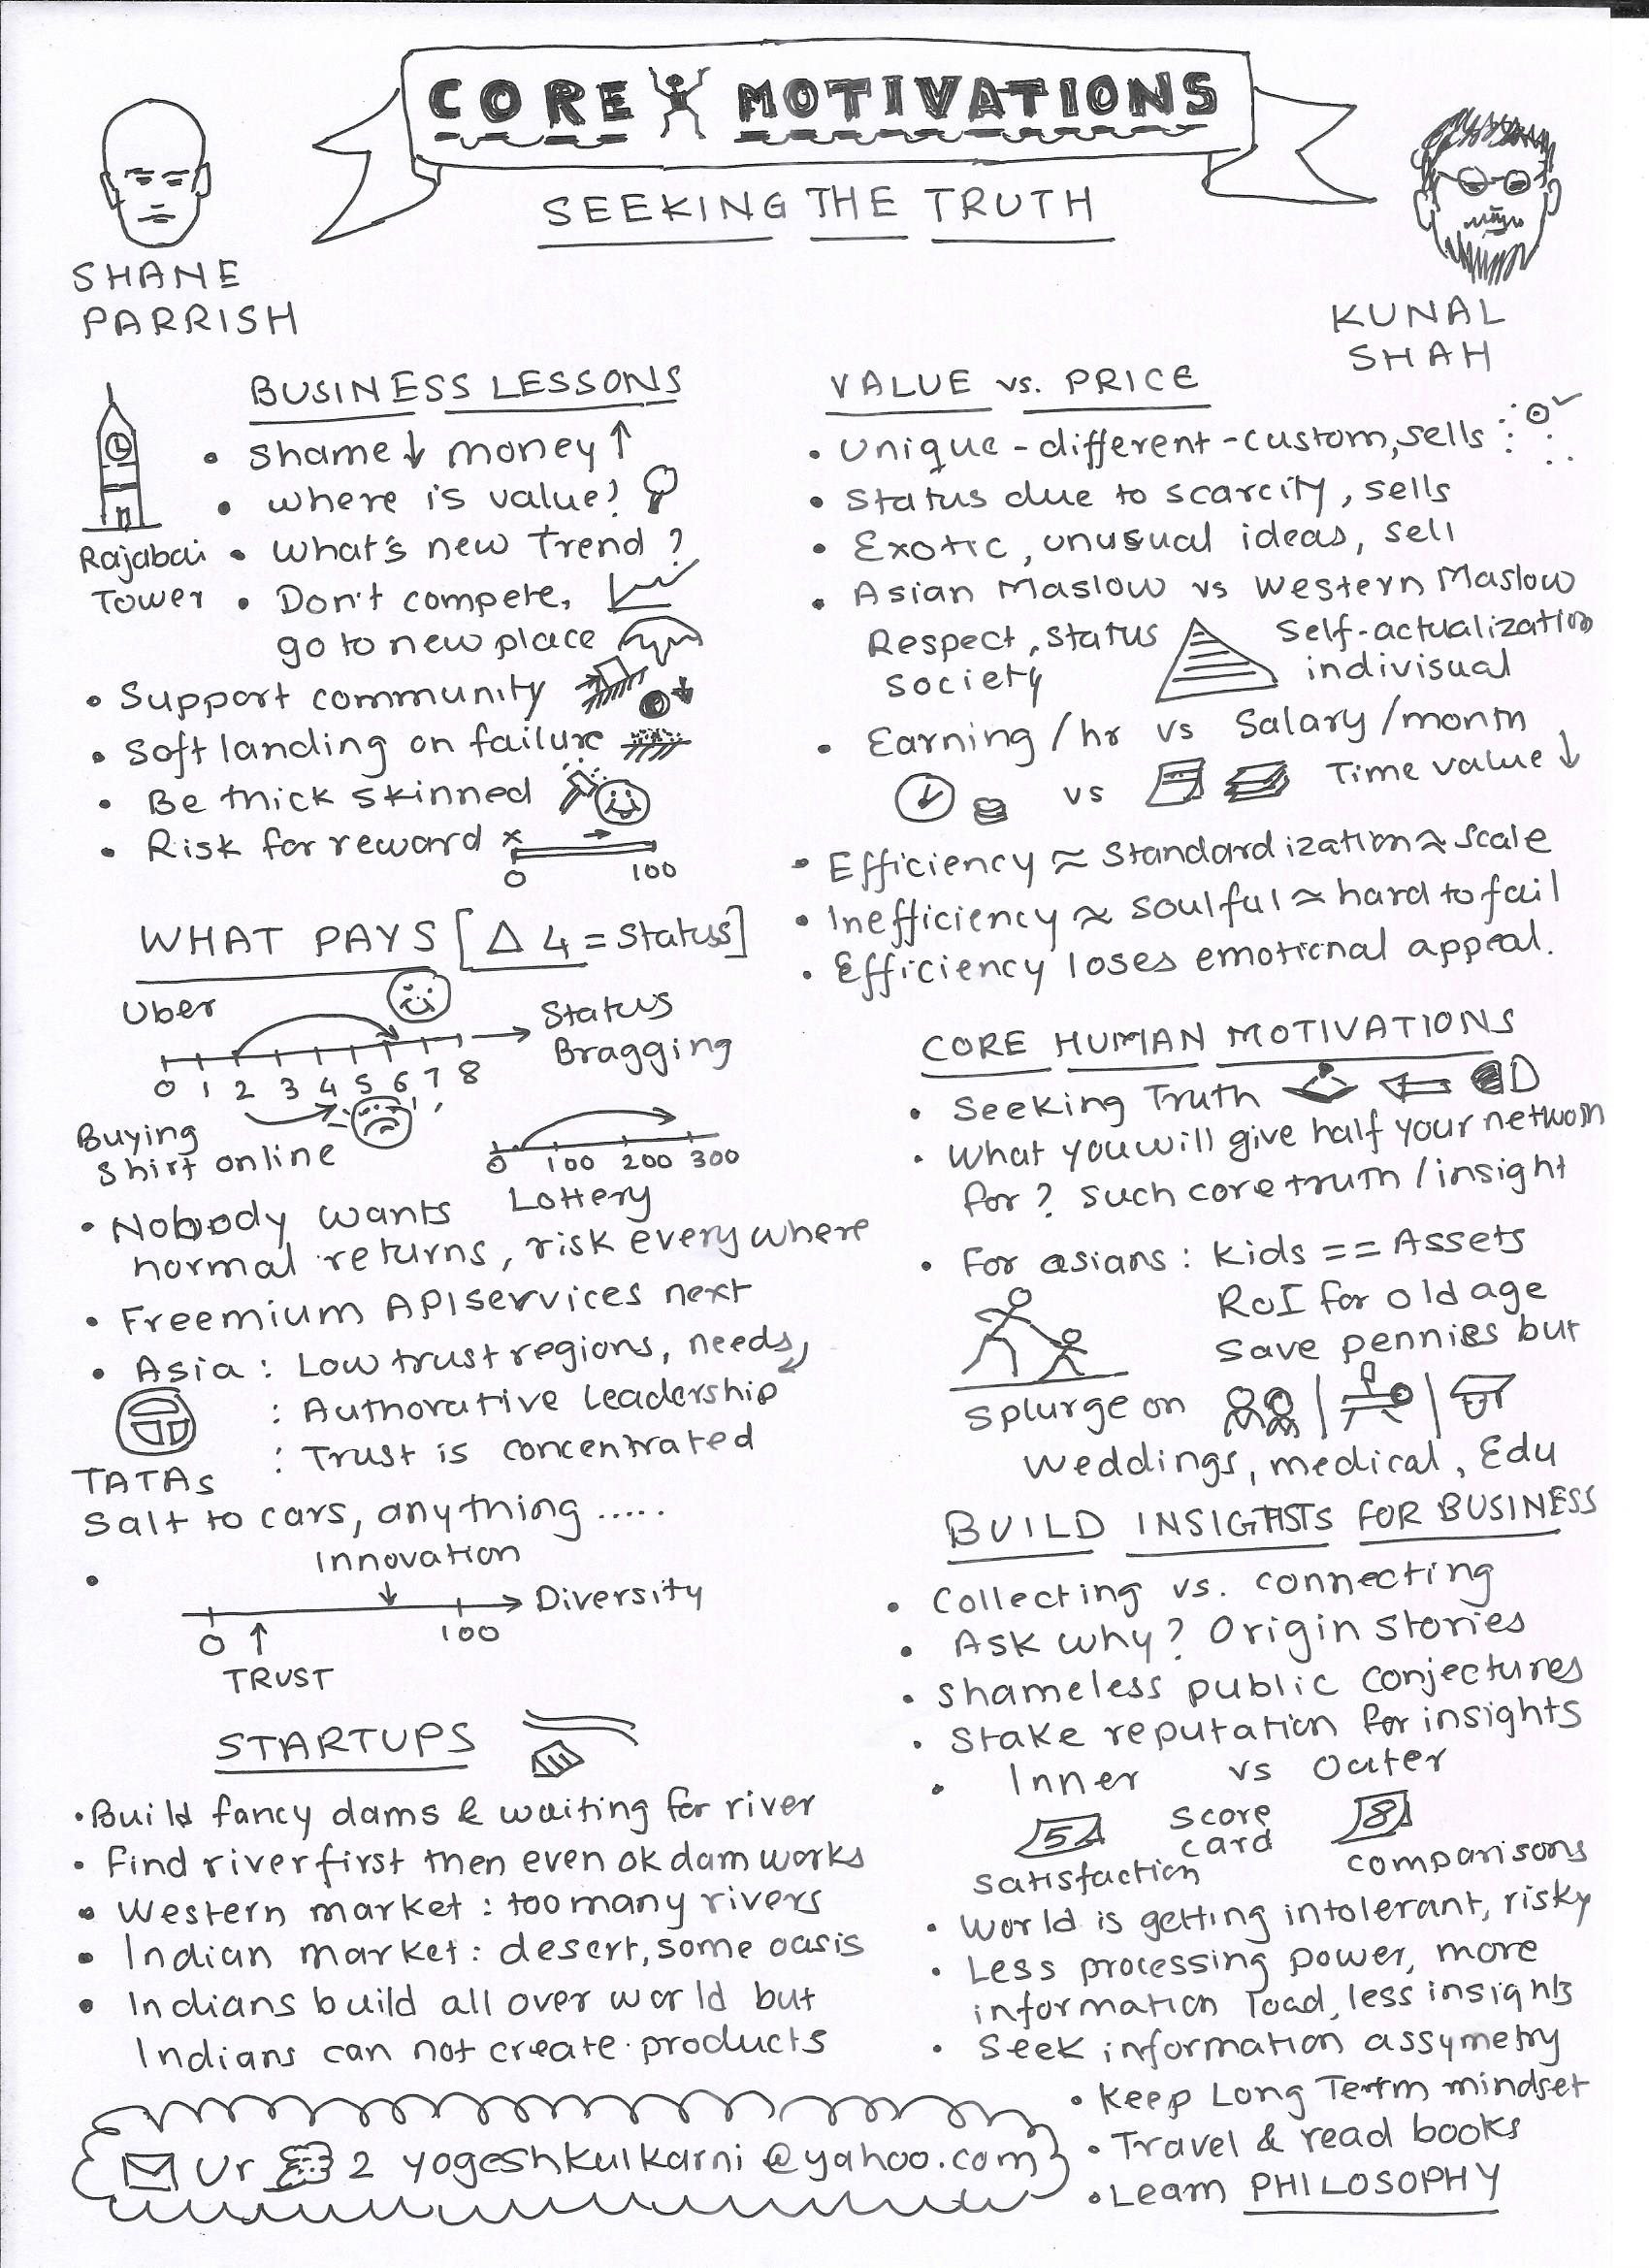 CORE MOTIVATIONS
SEEKING THE TRUTH
SHANE
PARRISH
KUNAL
SHAH
BUSINESS LESSONS
• Shame ↓ money ↑
• where is value?
Rajabai
Tower
• What's new Trend ?
• Don't compete,
go to new place
• Support community
• Soft landing on failure
• Be thick skinned
• Risk for reward
x
0 100
WHAT PAYS [Δ 4 = Status]
Uber
Status
Bragging
0 1 2 3 4 5 6 7 8
Buying
Shirt online
0 100 200 300
Lottery
• Nobody wants
normal returns, risk everywhere
• Freemium API services next
• Asia : Low trust regions, needs
: Authorative Leadership
: Trust is concentrated
TATAs
Salt to cars, anything .....
•
Innovation
Diversity
0 100
TRUST
STARTUPS
• Build fancy dams & waiting for river
• Find river first then even ok dam works
• Western market : too many rivers
• Indian market : desert, some oasis
• Indians build all over world but
Indians can not create products
Ur 2 yogeshkulkarni@yahoo.com
VALUE vs. PRICE
• Unique - different - custom, sells
• Status due to scarcity, sells
• Exotic, unusual ideas, sell
• Asian Maslow vs Western Maslow
Respect, status
society
Self-actualization
indivisual
• Earning / hr vs Salary / month
vs
Time value ↓
• Efficiency ≈ Standardization ≈ scale
• Inefficiency ≈ soulful ≈ hard to fail
• Efficiency loses emotional appeal.
CORE HUMAN MOTIVATIONS
• Seeking Truth
• What you will give half your networh
for? such core truth / insight
• For asians : Kids == Assets
RoI for old age
Save pennies but
splurge on
weddings, medical, Edu
BUILD INSIGHTS FOR BUSINESS
• Collecting vs. connecting
• Ask why? Origin stories
• Shameless public conjectures
• Stake reputation for insights
• Inner vs Outer
52 score
card 8
satisfaction comparisons
• World is getting intolerant, risky
• Less processing power, more
information load, less insights
• Seek information assymetry
• Keep Long Term mindset
• Travel & read books
• Learn PHILOSOPHY